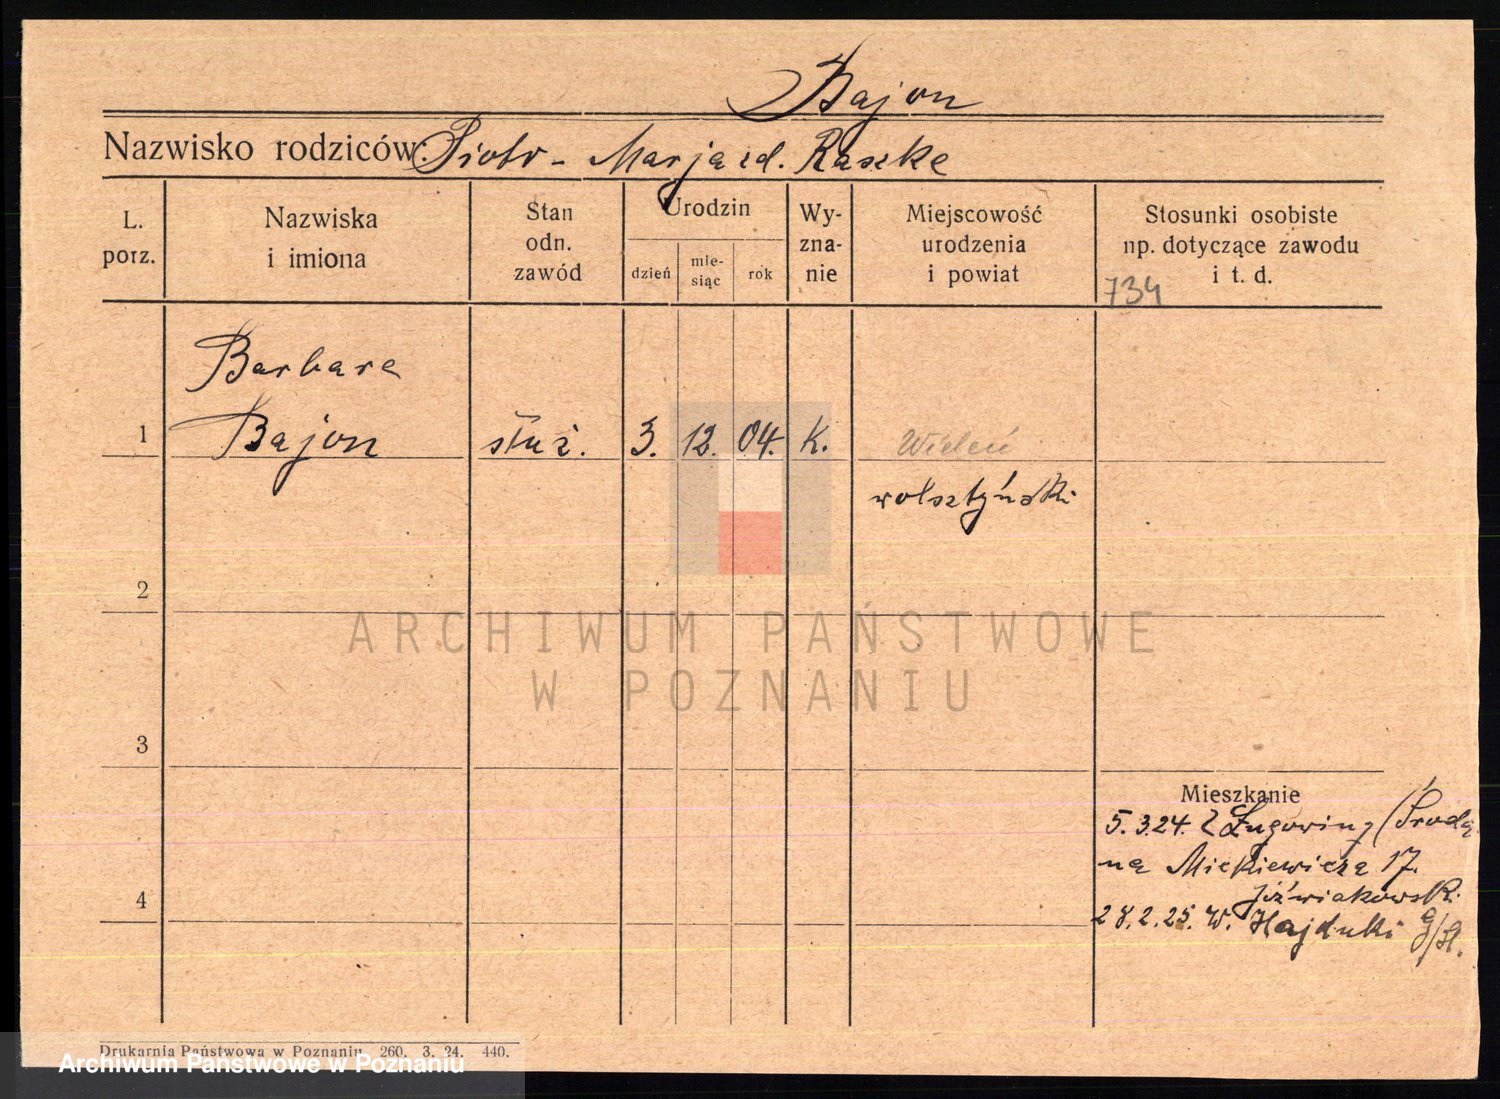 Bajon
Nazwisko rodziców: Piotr - Marja zd. Raszke
L. porz.
Nazwiska i imiona
Stan odn. zawód
Urodzin
dzień
mie-
siąc
rok
Wy-
zna-
nie
Miejscowość urodzenia i powiat
Stosunki osobiste np. dotyczące zawodu i t. d.
734
Barbara
1 Bajon służ. 3. 12. 04. K. Wieleń
wolsztyński
2
ARCHIWUM PAŃSTWOWE
W POZNANIU
3
Mieszkanie
5.3.24. Z Ługowiny (Środa
na Mickiewicza 17.
Jóźwiakowski
4
28.2.25. W. Hajduki G/Sl.
Drukarnia Państwowa w Poznaniu 260. 3. 24. 440.
Archiwum Państwowe w Poznaniu